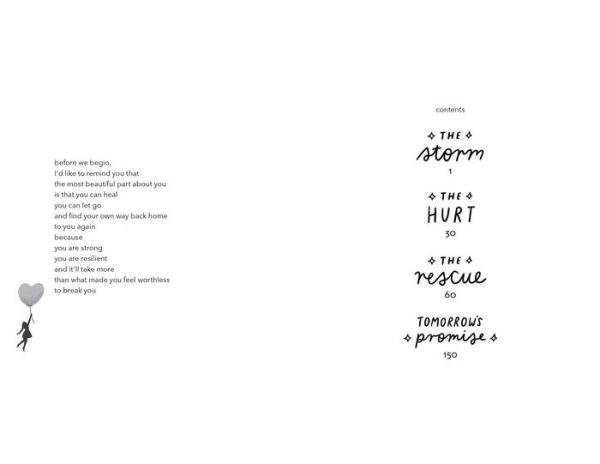 before we begin,
I'd like to remind you that
the most beautiful part about you
is that you can heal
you can let go
and find your own way back home
to you again
because
you are strong
you are resilient
and it'll take more
than what made you feel worthless
to break you
contents
THE
storm
1
THE
HURT
30
THE
rescue
60
TOMORROW'S
promise
150